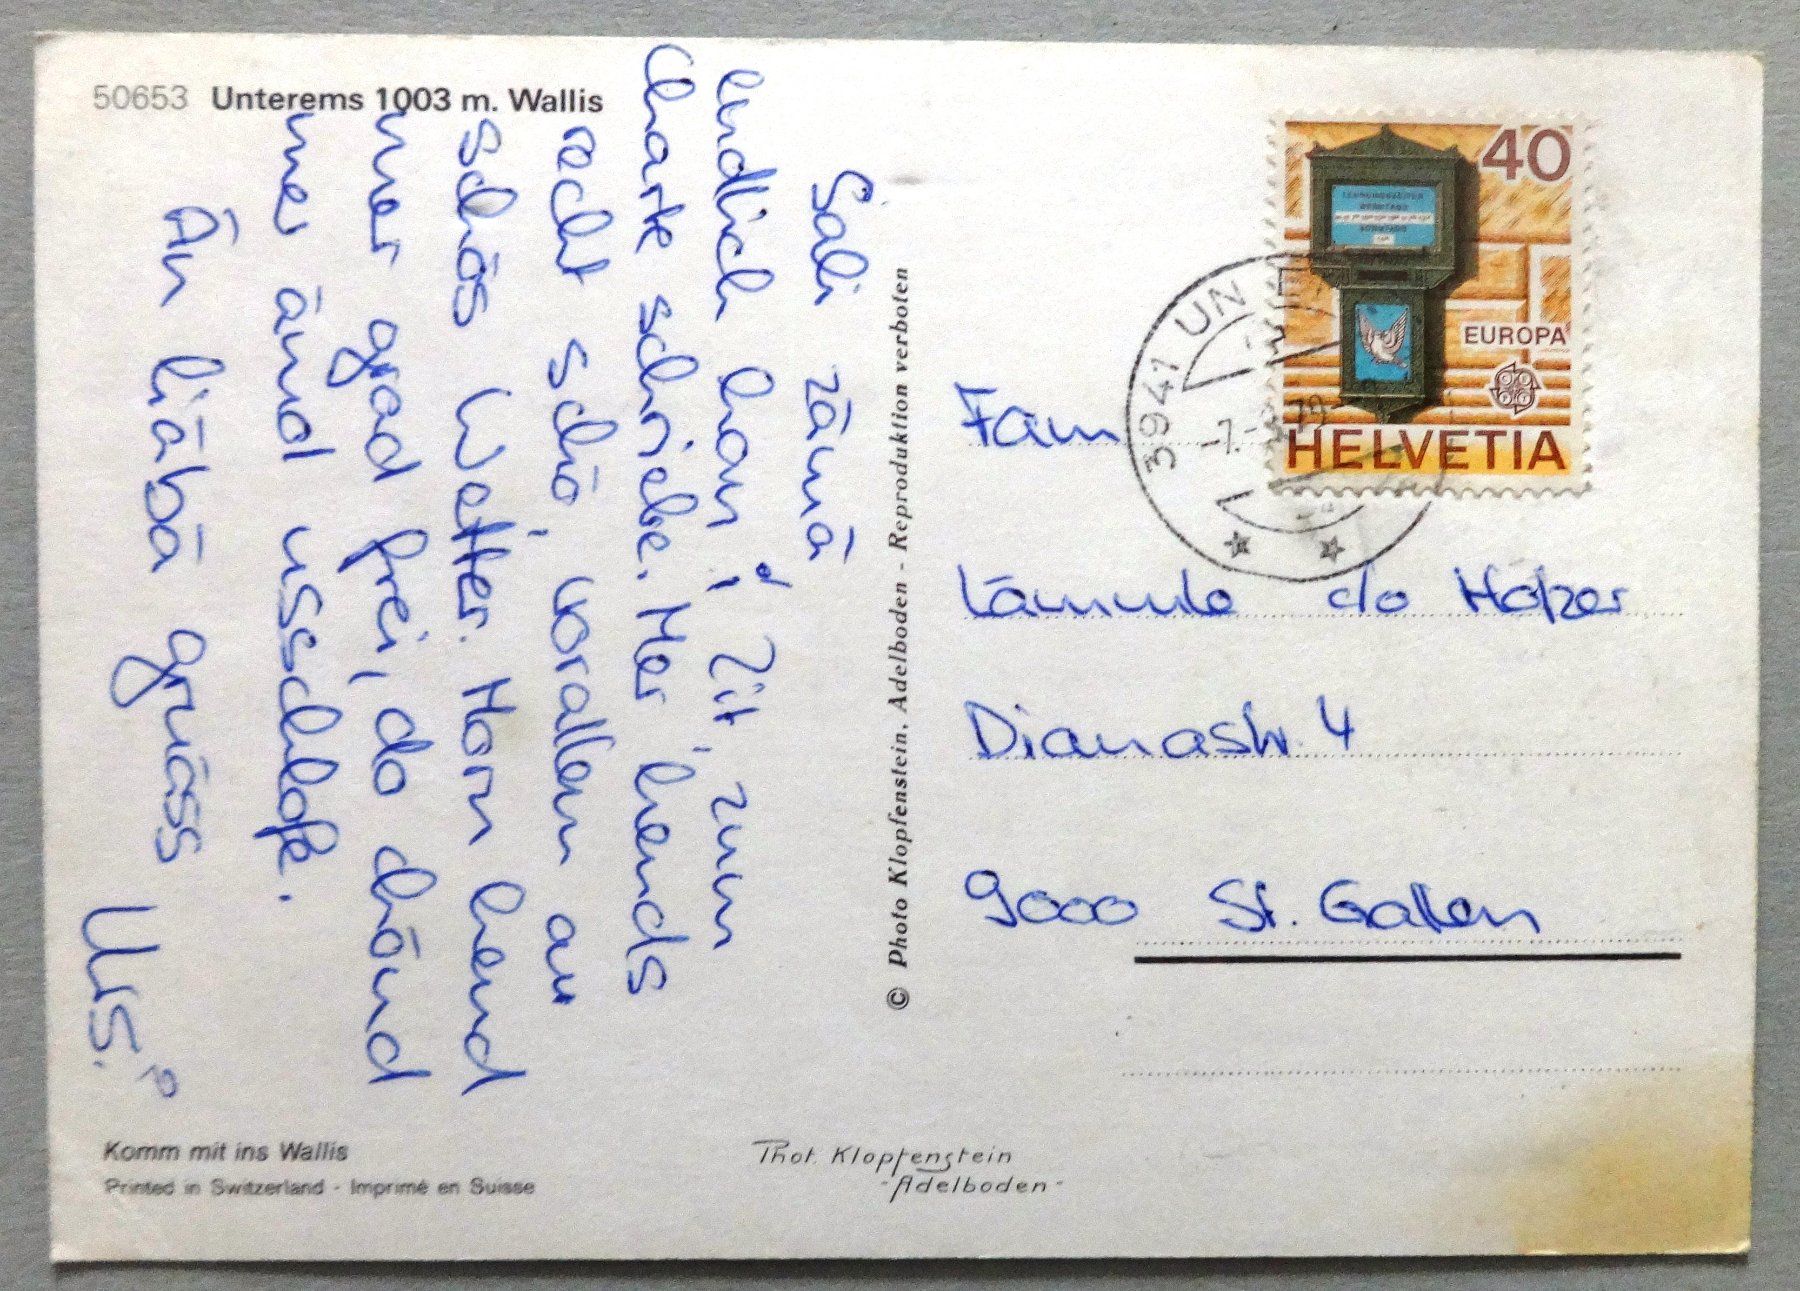 50653 Unterems 1003 m. Wallis
Sali zämä
endlich han i Zit, zum
Charte schriebe. Mer hends
recht schö, vorallem au
schös Wetter. Morn hend
mer grad frei, do chönd
mer änd usschlofe.
Än liäbä gruäss
Urs.
© Photo Klopfenstein, Adelboden - Reproduktion verboten
40
EUROPA
HELVETIA
3941 UN
-7.-
79
Fam
Lämmle c/o Holzer
Dianastr. 4
9000 St. Gallen
Komm mit ins Wallis
Printed in Switzerland - Imprimé en Suisse
Phot. Klopfenstein
-Adelboden-